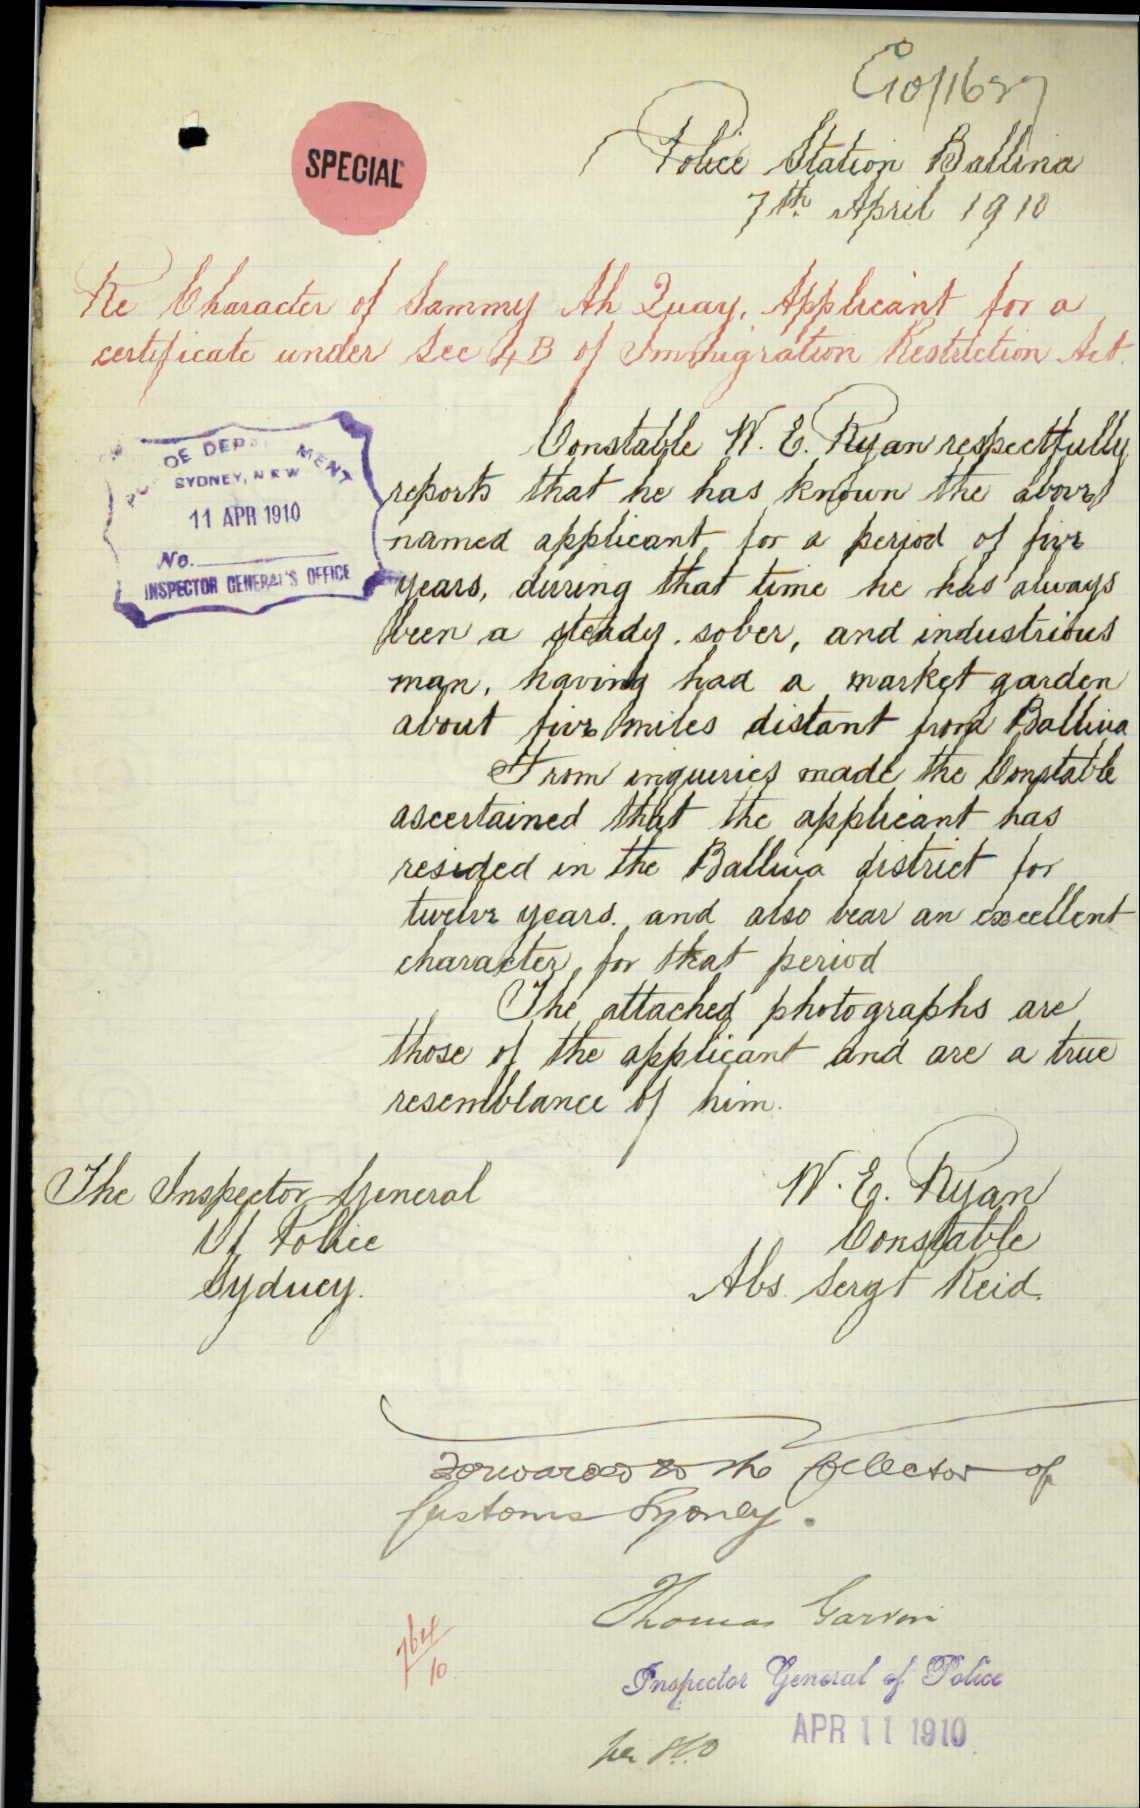 C10/1627
SPECIAL
Police Station Ballina
7th April 1910
Re Character of Sammy Ah Quay. Applicant for a
certificate under Sec 4B of Immigration Restriction Act.
Constable W. E. Ryan respectfully
reports that he has known the above
named applicant for a period of five
years, during that time he has always
been a steady. sober, and industrious
man, having had a market garden
about five miles distant from Ballina
From inqueries made the Constable
ascertained that the applicant has
resided in the Ballina district for
twelve years. and also bear an excellent
character for that period
The attached photographs are
those of the applicant and are a true
resemblance of him.
POLICE DEPARTMENT
SYDNEY, NSW
11 APR 1910
No.
INSPECTOR GENERAL'S OFFICE
The Inspector General
Of Police
Sydney.
W. E. Ryan
Constable
Abs. Sergt Reid.
Forwarded to the Collector of
Customs Sydney.
Thomas Garvin
Inspector General of Police
APR 11 1910
per
764/10